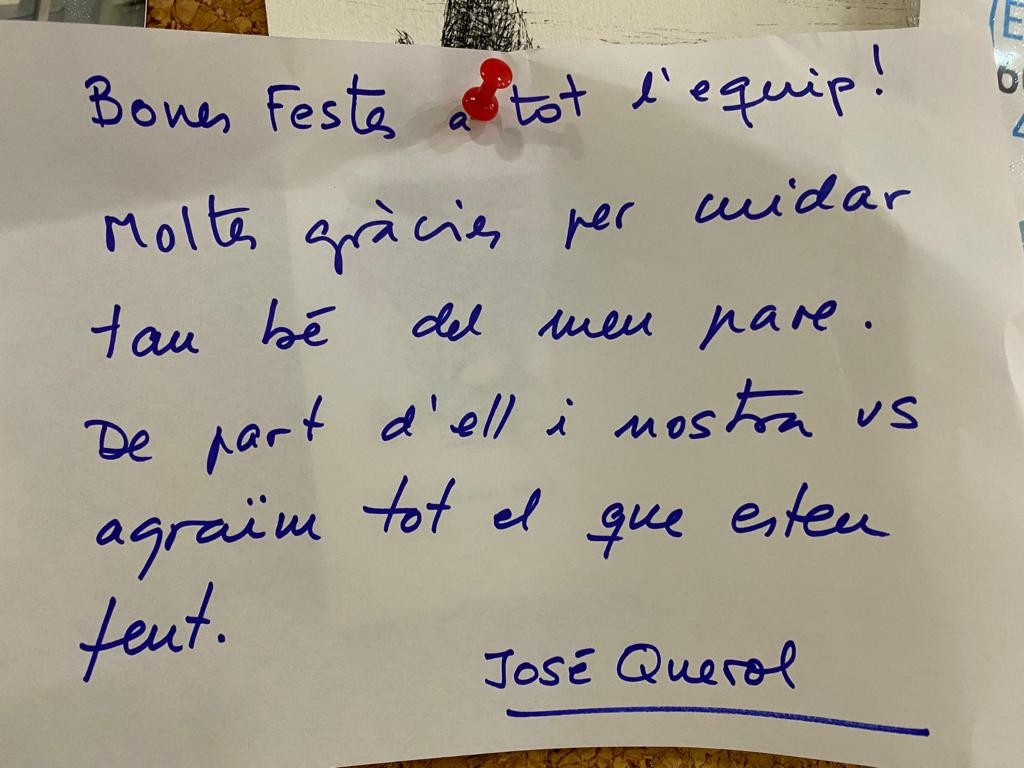 Bones Festes a tot l'equip!
Moltes gràcies per cuidar
tan bé del meu pare.
De part d'ell i nostra us
agraïm tot el que esteu
fent.
José Querol